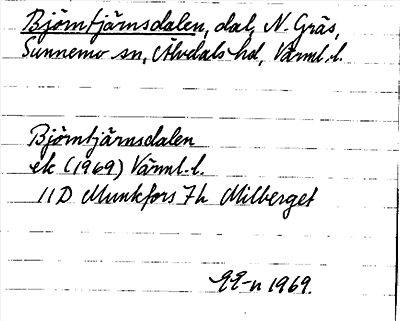 Björntjärnsdalen, dal, N. Gräs,
Sunnemo sn, Älvdals hd, Värml. l.
Björntjärnsdalen
ek (1969) Värml. l.
11D Munkfors 7h Milberget
1969.